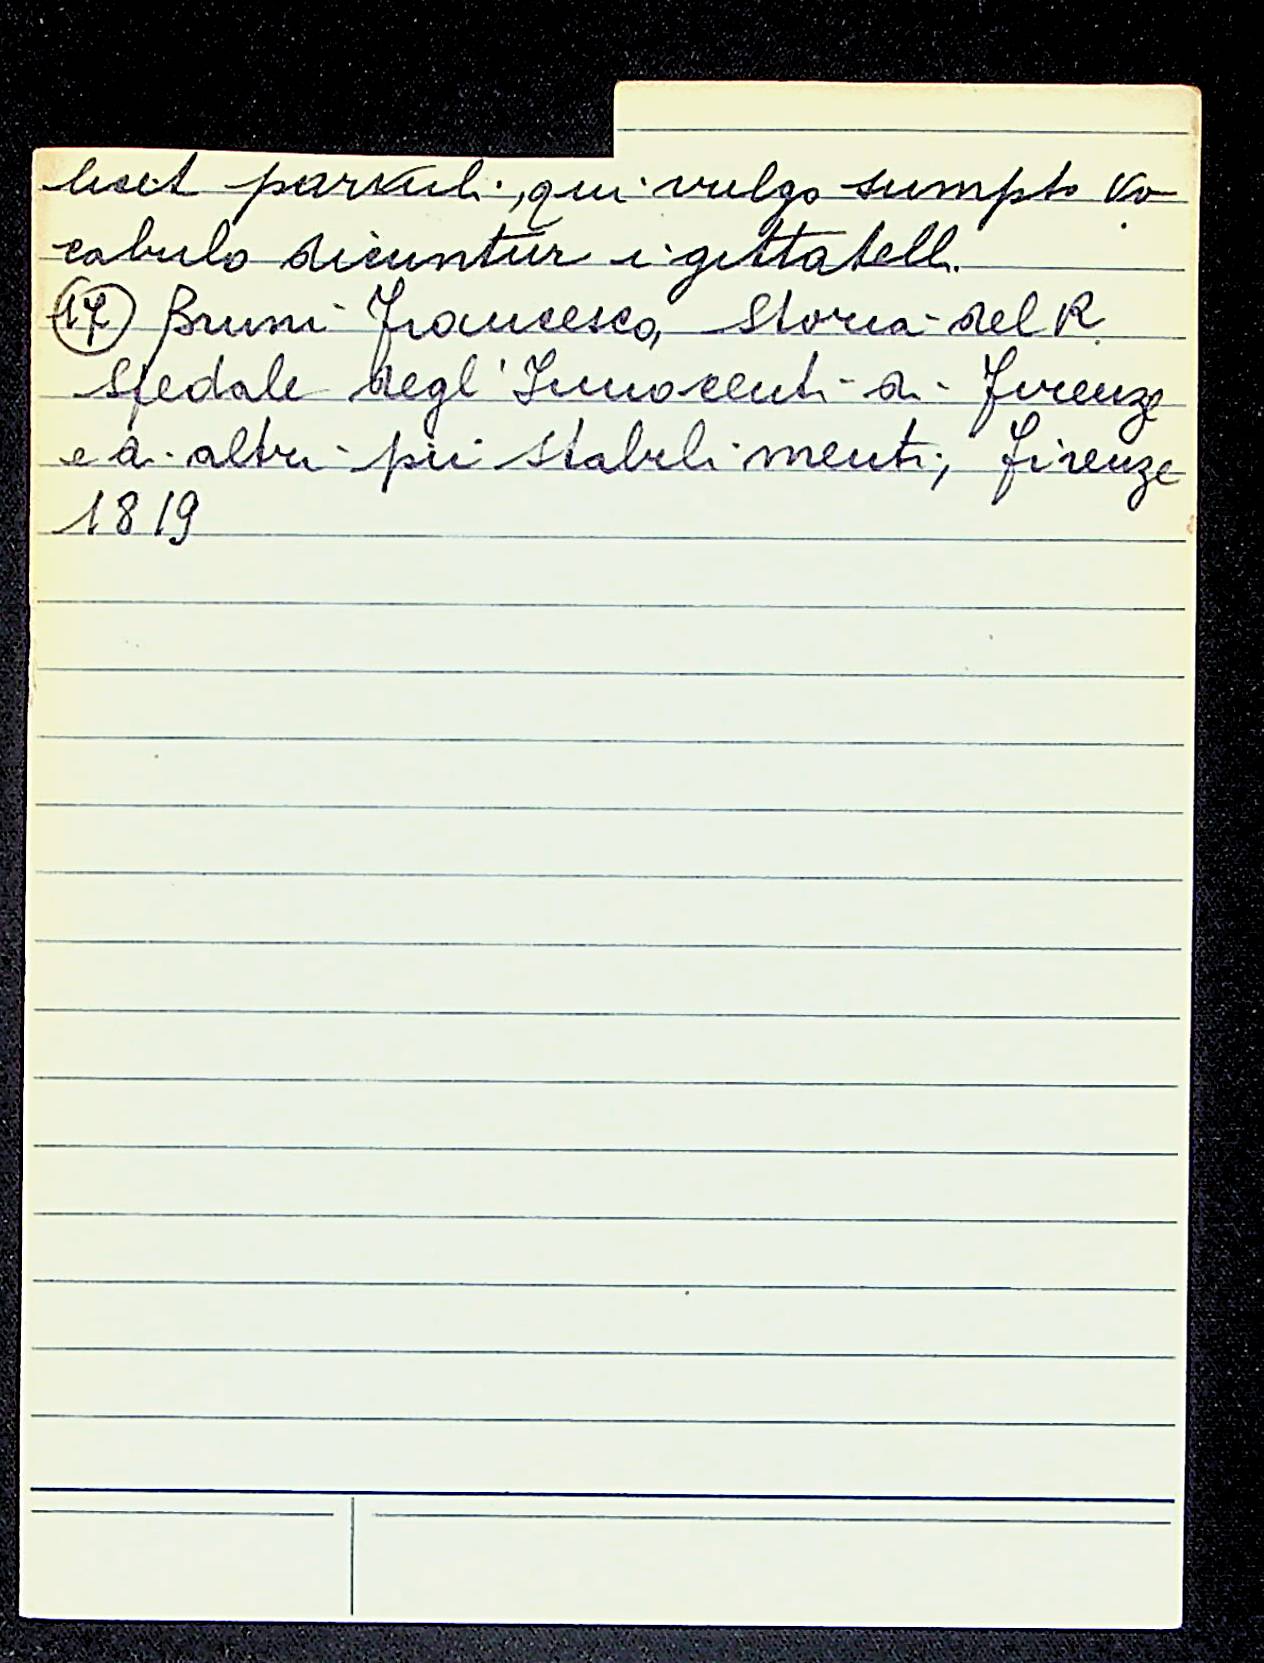 licet parvuli, qui vulgo sumpto vo
cabulo dicuntur i gittatelli.
(17) Bruni Francesco, Storia del R.
Spedale degl'Innocenti di Firenze
e di altri pii stabilimenti, Firenze
1819